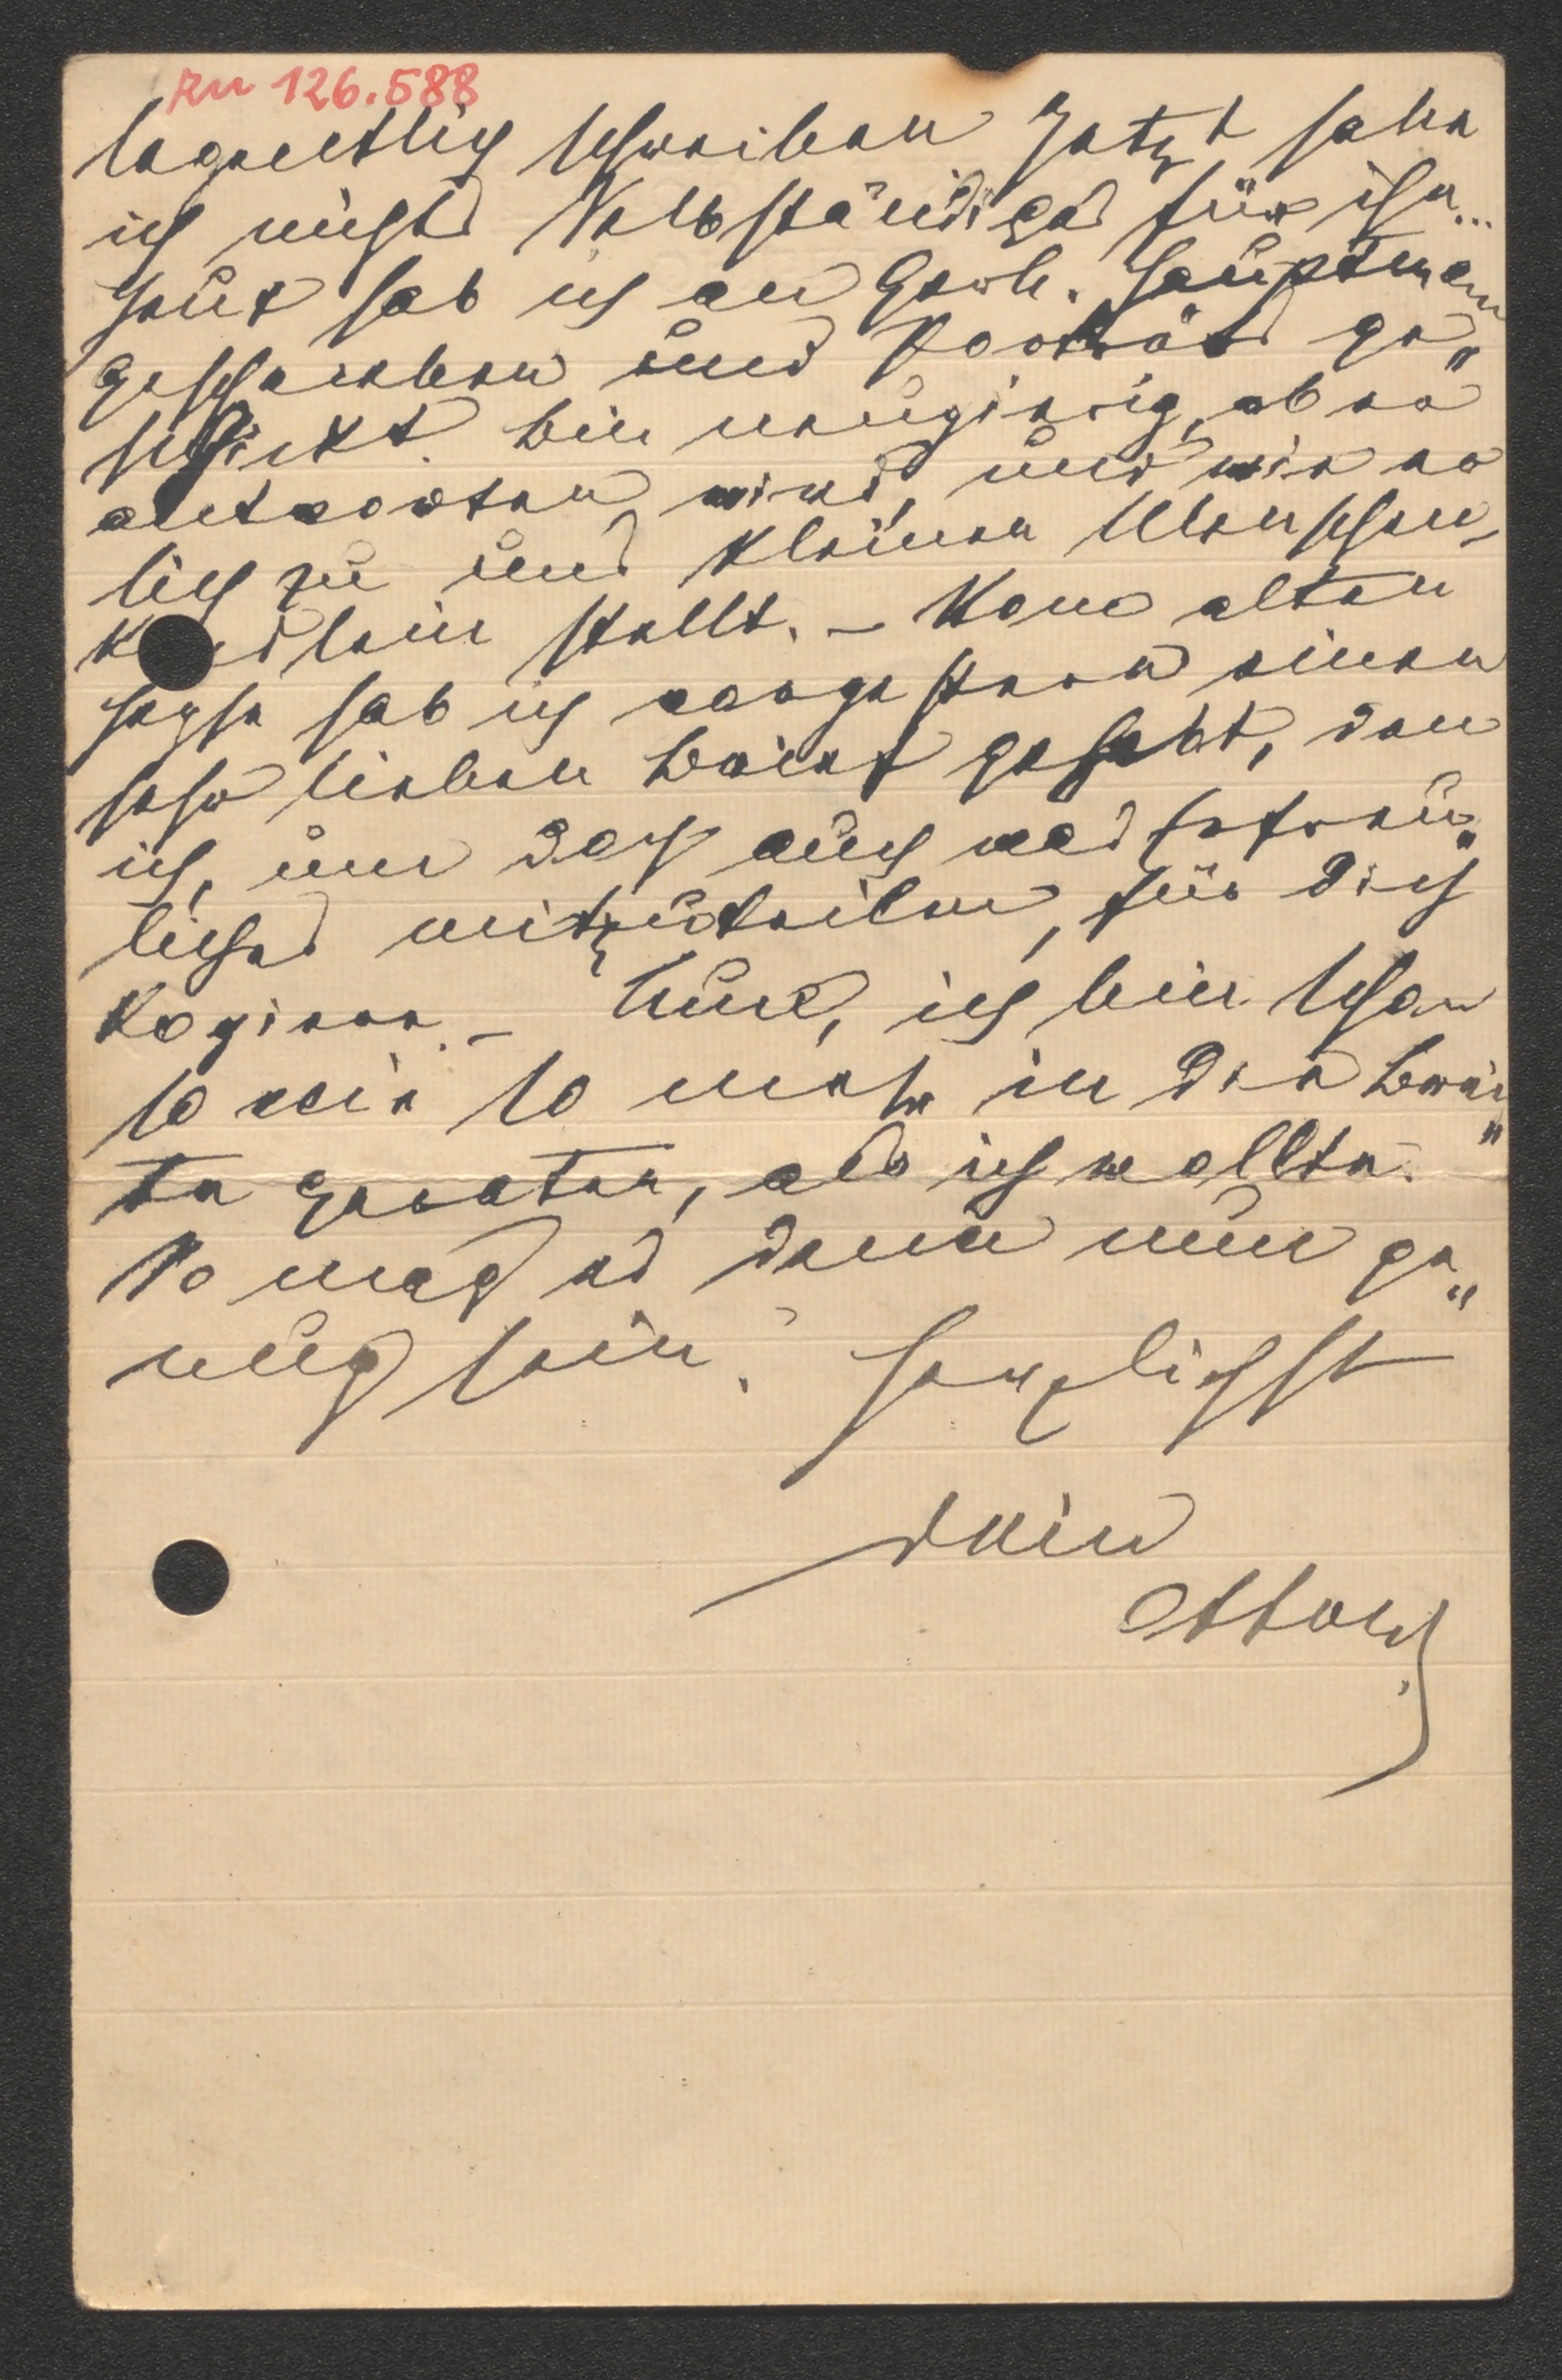 zu 126.588
legentlich schreiben. Jetzt habe
ich nichts Selbständiges für ihn...
Heut hab ich an Gerh. Hauptmann
geschrieben und Porträts ge„
schickt. Bin neugierig, ob er
antworten wird, und wie er
sich zu uns kleinen Menschen-
kindlein stellt. – Vom alten
Heyse hab ich vorgestern einen
sehr lieben Brief gehabt, den
ich, um doch auch was Erfreu„
liches mitzuteilen, für Dich
kopiere. – Nun, ich bin schon
so wie so mehr in die Brei„
te geraten, als ich wollte.
So mag es denn nun ge„
nug sein. Herzlichst
Dein
Ottou